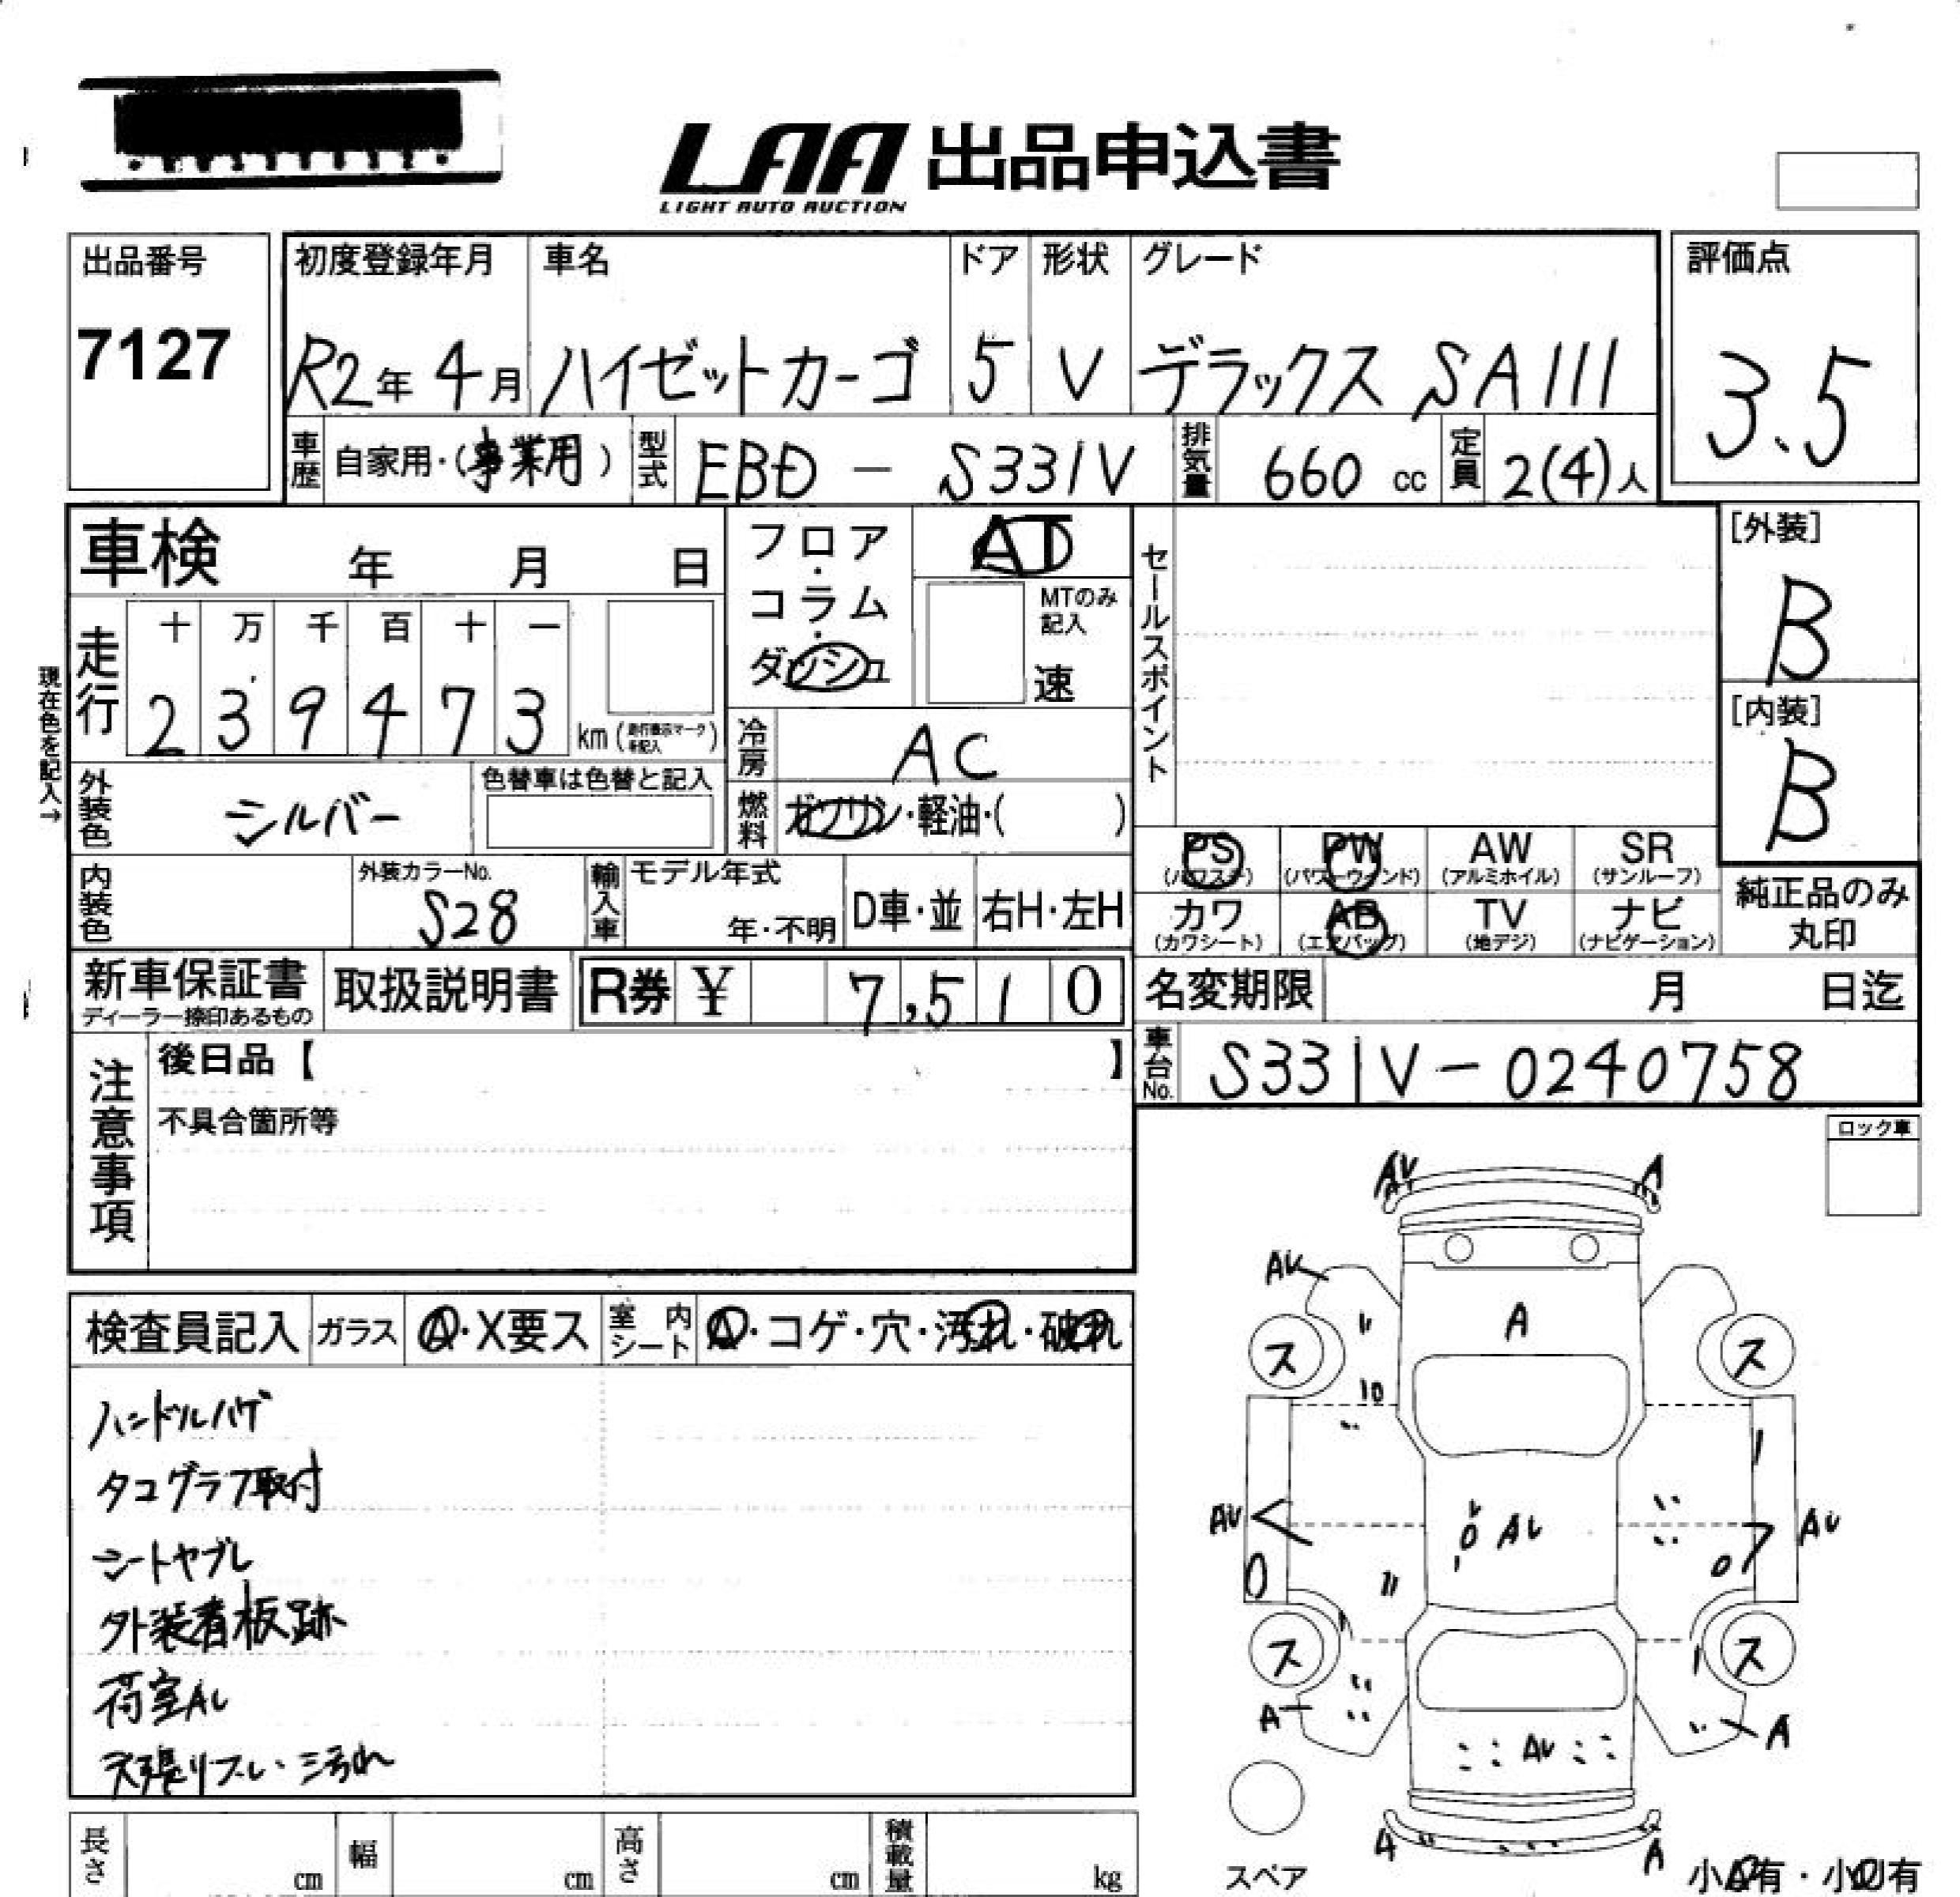 LAA 出品申込書
LIGHT AUTO AUCTION
出品番号
7127
初度登録年月 車名 ドア 形状 グレード
R2年 4月 ハイゼットカーゴ 5 V デラックス SAIII
評価点
3.5
車歴 自家用・(事業用) 型式 EBD - S331V 排気量 660 cc 定員 2(4)人
車検 年 月 日
フロア・コラム・ダッシュ
AT
MTのみ記入
速
セールスポイント
[外装]
B
[内装]
B
現在色を記入→
走行 十 万 千 百 十 一
2 3 9 4 7 3 km
冷房 AC
燃料 ガソリン・軽油・( )
外装色 シルバー 色替車は色替と記入
内装色 外装カラーNo. S28 輸入車 モデル年式 年・不明 D車・並 右H・左H
PS (パワステ) PW (パワーウィンド) AW (アルミホイル) SR (サンルーフ)
カワ (カワシート) AB (エアバッグ) TV (地デジ) ナビ (ナビゲーション)
純正品のみ丸印
新車保証書 取扱説明書 R券 ¥ 7,510
ディーラー捺印あるもの
名変期限 月 日迄
車台No. S331V-0240758
注意事項
後日品【 】
不具合箇所等
ロック車
検査員記入 ガラス A・X要ス 室内シート A・コゲ・穴・汚れ・破れ
ハンドルハゲ
タコグラフ取付
シートヤブレ
外装看板跡
荷室AU
AU A
AU
A
ス ス
10
AU AU AU
ス ス
A A
AU
A A
スペア
小A有・小U有
長さ cm 幅 cm 高さ cm 積載量 kg